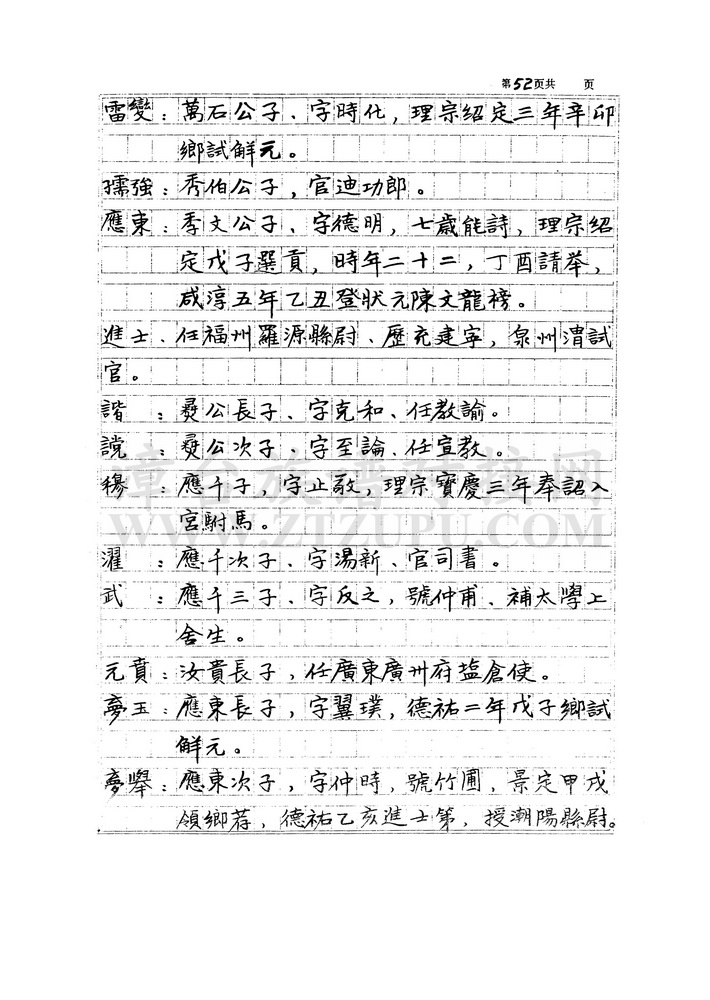 第52页共 页
雷變：萬石公子、字時化，理宗紹定三年辛卯
鄉試解元。
孺強：秀伯公子，官迪功郎。
應東：季文公子、字德明，七歲能詩，理宗紹
定戊子選貢，時年二十二，丁酉請举，
咸淳五年乙丑登狀元陳文龍榜。
進士、任福州羅源縣尉、歷充建寧，泉州漕試
官。
諧：發公長子、字克和、任教諭。
說：發公次子、字至論、任宣教。
穆：應千子，字止敬，理宗寶慶三年奉詔入
宮駙馬。
濯：應千次子、字湯新、官司書。
武：應千三子、字反之，號仲甫、補太學上
舍生。
元賁：汝貴長子，任廣東廣州府塩倉使。
夢玉：應東長子，字翼璞，德祐二年戊子鄉試
解元。
夢舉：應東次子，字仲時，號竹圃，景定甲戌
領鄉荐，德祐乙亥進士第，授潮陽縣尉。
漳台族譜对接网
WWW.ZTZUPU.COM